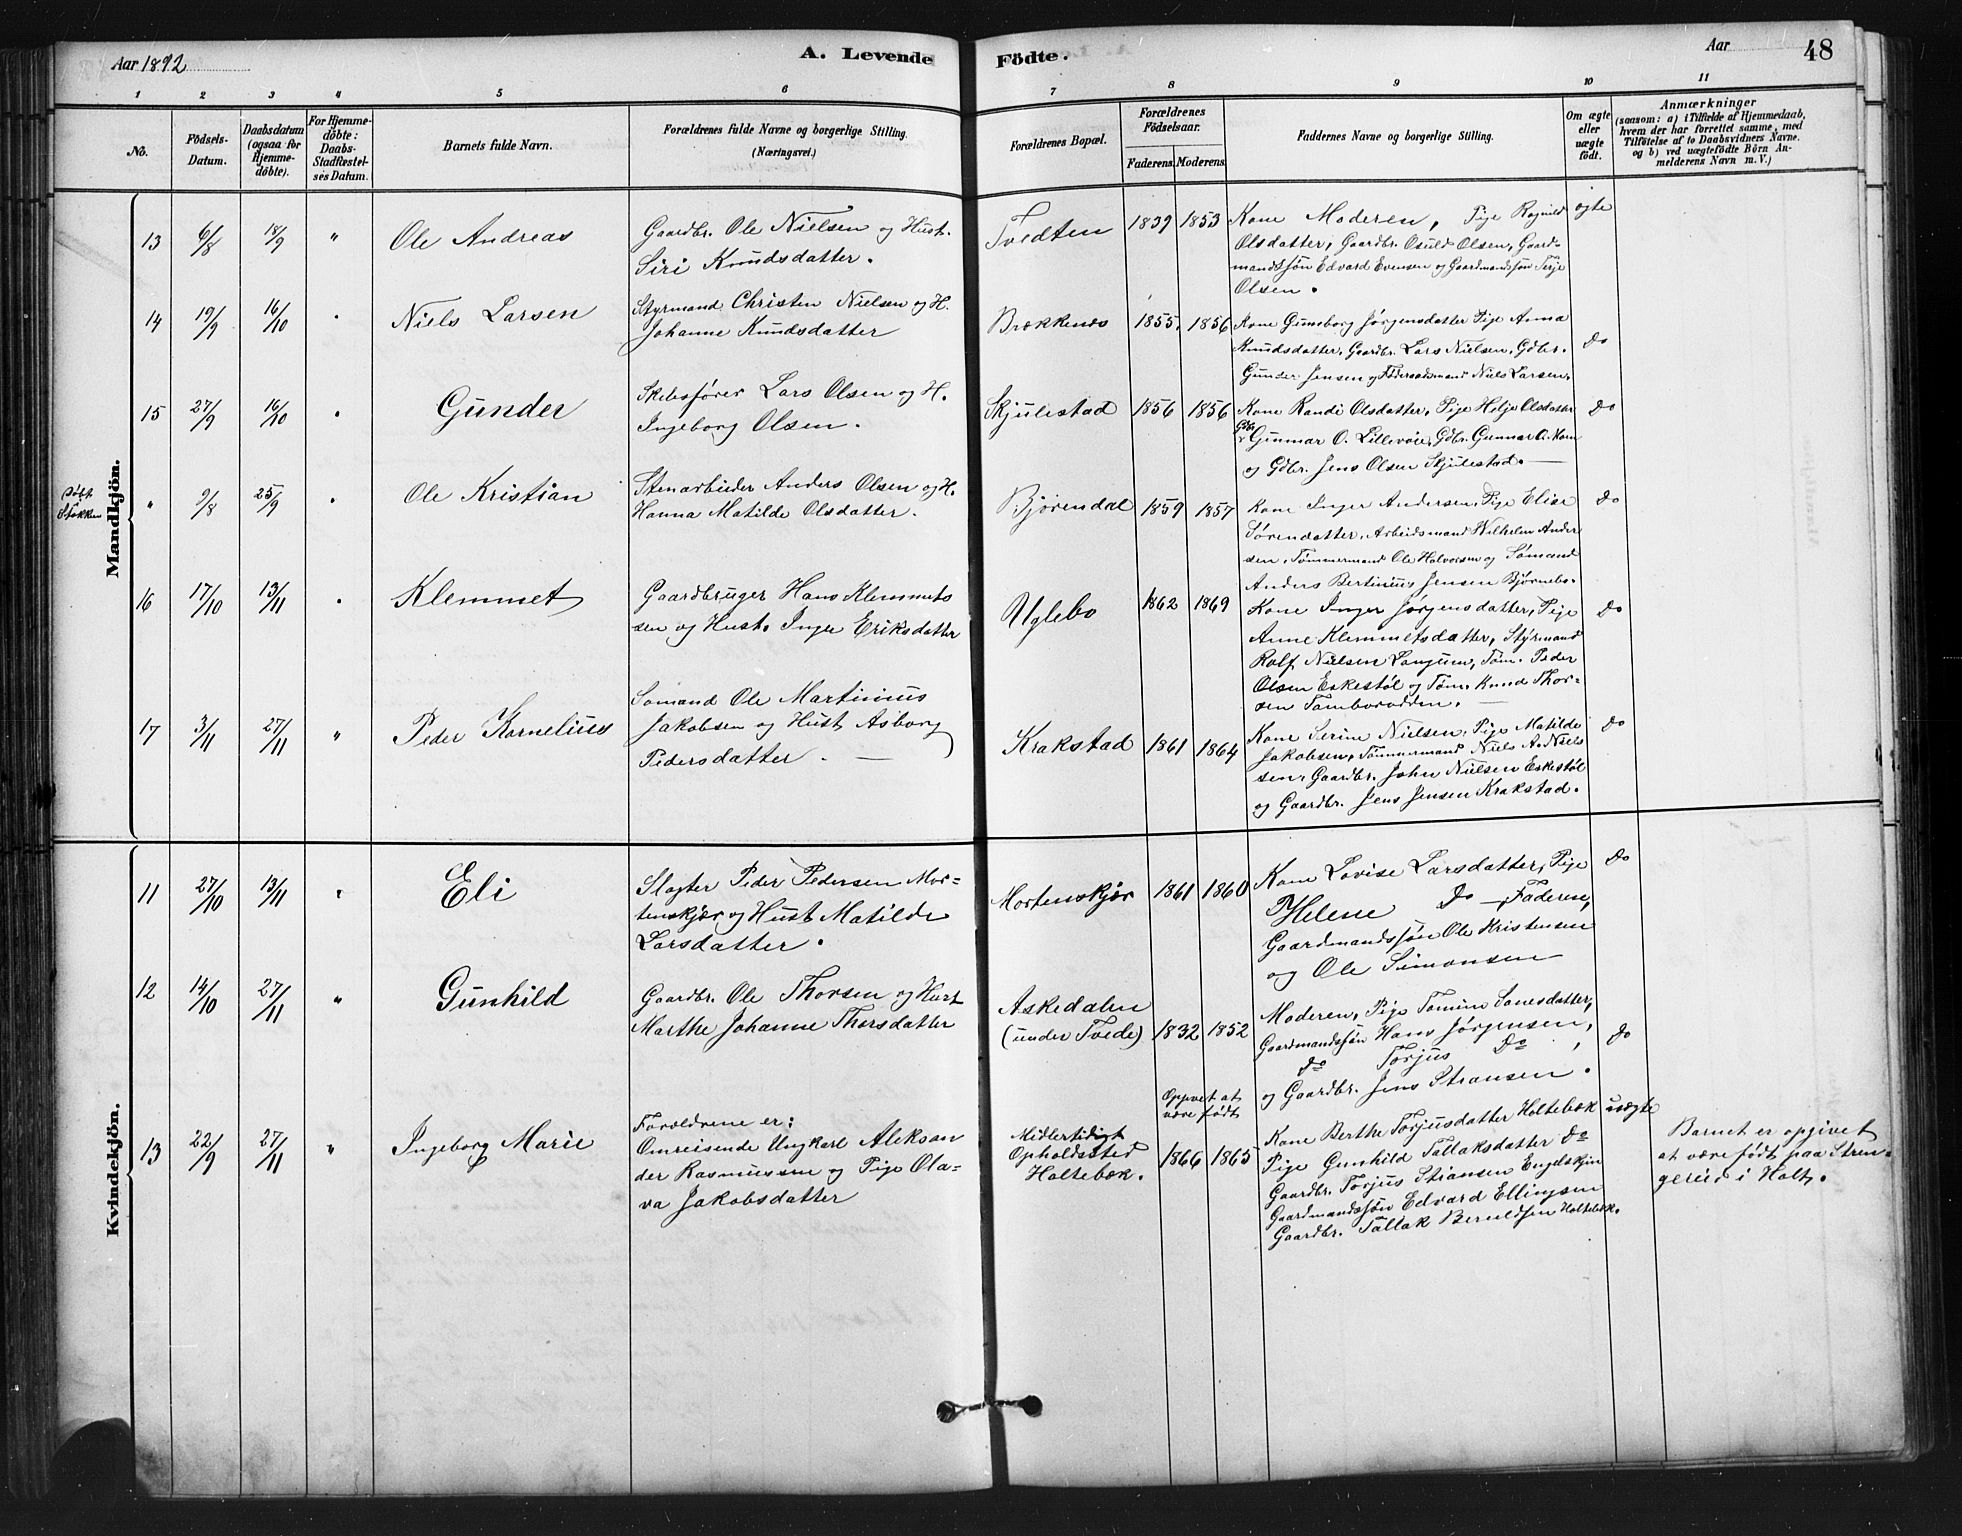 Aar 1892
A. Levende
Födte.
Aar
48
1 2 3 4 5 6 7 8 9 10 11
No.
Födsels-
Datum.
Daabsdatum
(ogsaa for
Hjemme-
døbte).
For Hjemme-
døbte:
Daabs-
Stadfæstel-
ses Datum.
Barnets fulde Navn.
Forældrenes fulde Navne og borgerlige Stilling.
(Næringsvei.)
Forældrenes Bopæl.
Forældrenes
Födselsaar.
Faderens. Moderens.
Faddernes Navne og borgerlige Stilling.
Om ægte
eller
uægte
födt.
Anmærkninger
(saasom: a) i Tilfælde af Hjemmedaab,
hvem der har forrettet samme, med
Tilföielse af to Daabsvidners Navne.
og b) ved uægtefödte Börn An-
melderens Navn m. V.)
Mandkjön.
13 6/8 18/9 " Ole Andreas
Gaardbr. Ole Nielsen og Hust.
Siri Knudsdatter.
Tvedten 1839 1853
Kone Moderen, Pige Ragnild
Olsdatter, Gaardbr. Osuld Olsen, Gaard-
mandssøn Edvard Evensen og Gaardmandssøn Terje
Olsen.
ægte
14 19/9 16/10 " Niels Larsen
Styrmand Christen Nielsen og H.
Johanne Knudsdatter
Brækkenes 1855. 1856
Kone Gunborg Jørgensdatter Pige Anna
Knudsdatter, Gaardbr. Lars Nielsen, Gdbr.
Gunder Jensen og Føderaadsmand Niels Larsen.
Do
15 27/9 16/10 " Gunder
Skibsfører Lars Olsen og H.
Ingeborg Olsen.
Skjulestad 1856 1856
Kone Randi Olsdatter, Pige Helje Olsdatter
Gdbr. Gunmar O. Lillevøie, Gdbr. Gunnar O. Mom
og Gdbr. Jens Olsen Skjulestad.
Do
Døbt
i
Stokken
" 9/8 25/9 " Ole Kristian
Stenarbeider Anders Olsen og H.
Hanna Matilde Olsdatter.
Bjørendal 1859 1857
Kone Inger Andersen, Pige Elise
Sørendatter, Arbeidsmand Wilhelm Ander
sen, Tømmermand Ole Halvorsen og Sømand
Anders Bertinius Jensen Bjørnebo.
Do
16 17/10 13/11 " Klemmet
Gaardbruger Hans Klemmets
sen og Hust. Inger Eriksdatter
Uglebo 1862 1869
Kone Inger Jørgensdatter, Pige
Anne Klemmetsdatter, Styrmand
Rolf Nielsen Langum, Tøm. Peder
Olsen Eskestøl og Tøm. Knud Thor-
sen Tamborodden.
Do
17 3/11 27/11 " Peder Kornelius
Sømand Ole Martinius
Jakobsen og Hust. Asborg
Pedersdatter.
Krakstad 1861 1864
Kone Serine Nielsen, Pige Matilde
Jakobsen, Tømmermand Niels A. Niels
sen, Gaardbr. John Nielsen Eskestøl
og Gaardbr. Jens Jensen Krakstad.
Do
Kvindekjön.
11 27/10 13/11 " Eli
Slagter Peder Pedersen Mor-
tenskjær og Hust Matilde
Larsdatter.
Mortenskjær 1861 1860
Kone Lovise Larsdatter, Pige
Helene Do, Faderen,
Gaardmandssøn Ole Kristensen
og Ole Simonsen
Do
12 14/10 27/11 " Gunhild
Gaardbr. Ole Thorsen og Hust
Marthe Johanne Thorsdatter
Askedalen
(under Tvede) 1832 1852
Moderen, Pige Tomine
Gaardmandssøn Hans Jørgensen,
Do Torjus Do,
og Gaardbr. Jens Stransen.
Do
13 22/9 27/11 " Ingeborg Marie
Forældrene er:
Omreisende Ungkarl Aleksan
der Rasmussen og Pige Ola-
va Jakobsdatter
Midlertidigt
Opholdssted
Holtebæk.
Oppvet at
være født
1866 1865
Kone Berthe Torjusdatter Holtebæk
Pige Gunhild Tallaksdatter Do
Gaardbr. Torjus Stiansen Engelskjøn
Gaardmandssøn Edvard Ellingsen
Gaardbr. Tallak Beruldsen Holtebæk.
uægte
Barnet er opgivet
at være født paa Stren-
gerud i Holt.